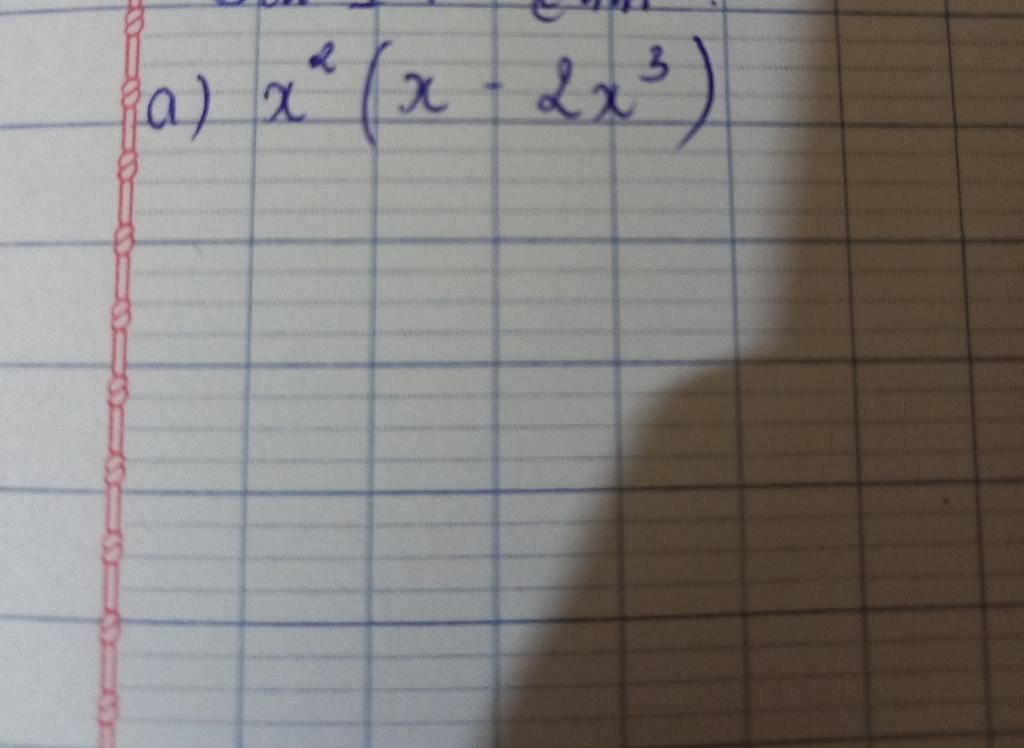 a) x² (x - 2x³)